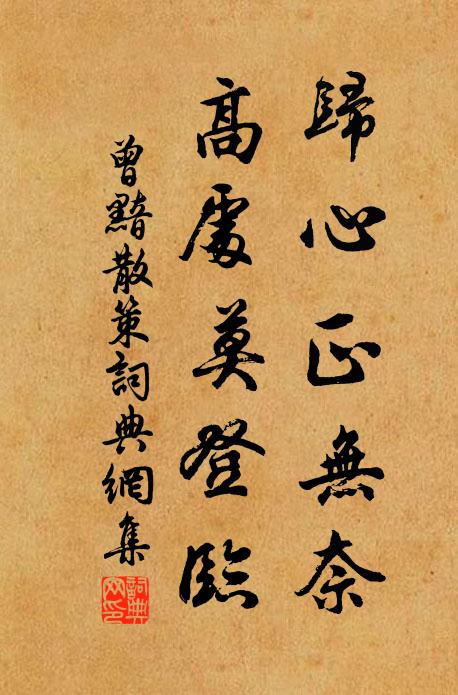 歸心正無奈
高處莫登臨
曾黯散策詞典網集
詞典
网印